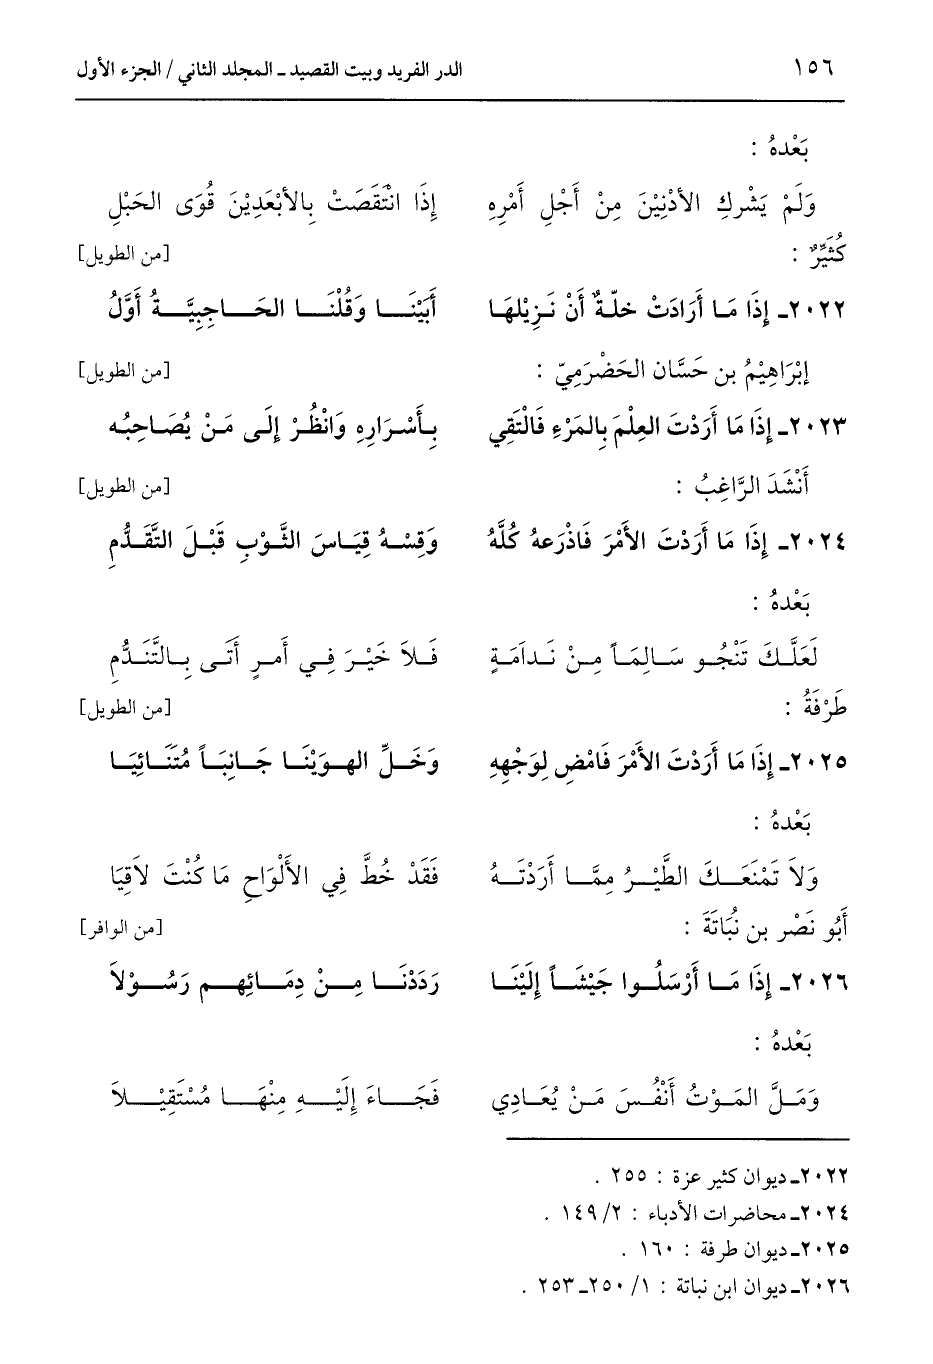 ١٥٦ الدر الفريد وبيت القصيد ـ المجلد الثاني / الجزء الأول
بَعْدهُ :
وَلَمْ يَشْركِ الأدْنِيْنَ مِنْ أَجْلِ أَمْرِهِ إِذَا انْتَقَصَتْ بِالأبْعَدِيْنَ قُوَى الحَبْلِ
كُثَيِّرٌ : [من الطويل]
٢٠٢٢ـ إِذَا مَا أَرَادَتْ خلّةٌ أَنْ نَزِيْلهَا أَبَيْنَا وَقُلْنَا الحَاجِبِيَّةُ أَوَّلُ
إبْرَاهِيْمُ بن حَسَّان الحَضْرمِيّ : [من الطويل]
٢٠٢٣ـ إِذَا مَا أَرَدْتَ العِلْمَ بِالمَرْءِ فَالْتَقِي بِأَسْرَارِهِ وَانْظُرْ إِلَى مَنْ يُصَاحِبُه
أَنْشَدَ الرَّاغِبُ : [من الطويل]
٢٠٢٤ـ إِذَا مَا أَرَدْتَ الأَمْرَ فَاذْرَعهُ كُلَّهُ وَقِسْهُ قِيَاسَ الثَّوْبِ قَبْلَ التَّقَدُّمِ
بَعْدهُ :
لَعَلَّكَ تَنْجُو سَالِمَاً مِنْ نَدامَةٍ فَلاَ خَيْرَ فِي أَمرٍ أَتَى بِالتَّنَدُّمِ
طَرْفَةُ : [من الطويل]
٢٠٢٥ـ إِذَا مَا أَرَدْتَ الأَمْرَ فَامْضِ لِوَجْهِهِ وَخَلِّ الهوَيْنَا جَانِبَاً مُتَنَائِيَا
بَعْدهُ :
وَلاَ تَمْنَعَكَ الطَّيْرُ مِمَّا أَرَدْتَهُ فَقَدْ خُطَّ فِي الأَلْوَاحِ مَا كُنْتَ لاَقِيَا
أَبُو نَصْر بن نُبَاتَةَ : [من الوافر]
٢٠٢٦ـ إِذَا مَا أَرْسَلُوا جَيْشَاً إِلَيْنَا رَدَدْنَا مِنْ دِمَائِهِم رَسُوْلاَ
بَعْدهُ :
وَمَلَّ المَوْتُ أَنْفُسَ مَنْ يُعَادِي فَجَاءَ إِلَيْهِ مِنْهَا مُسْتَقِيْلاَ
٢٠٢٢ـ ديوان كثير عزة : ٢٥٥ .
٢٠٢٤ـ محاضرات الأدباء : ٢/ ١٤٩ .
٢٠٢٥ـ ديوان طرفة : ١٦٠ .
٢٠٢٦ـ ديوان ابن نباتة : ١/ ٢٥٠ـ ٢٥٣ .